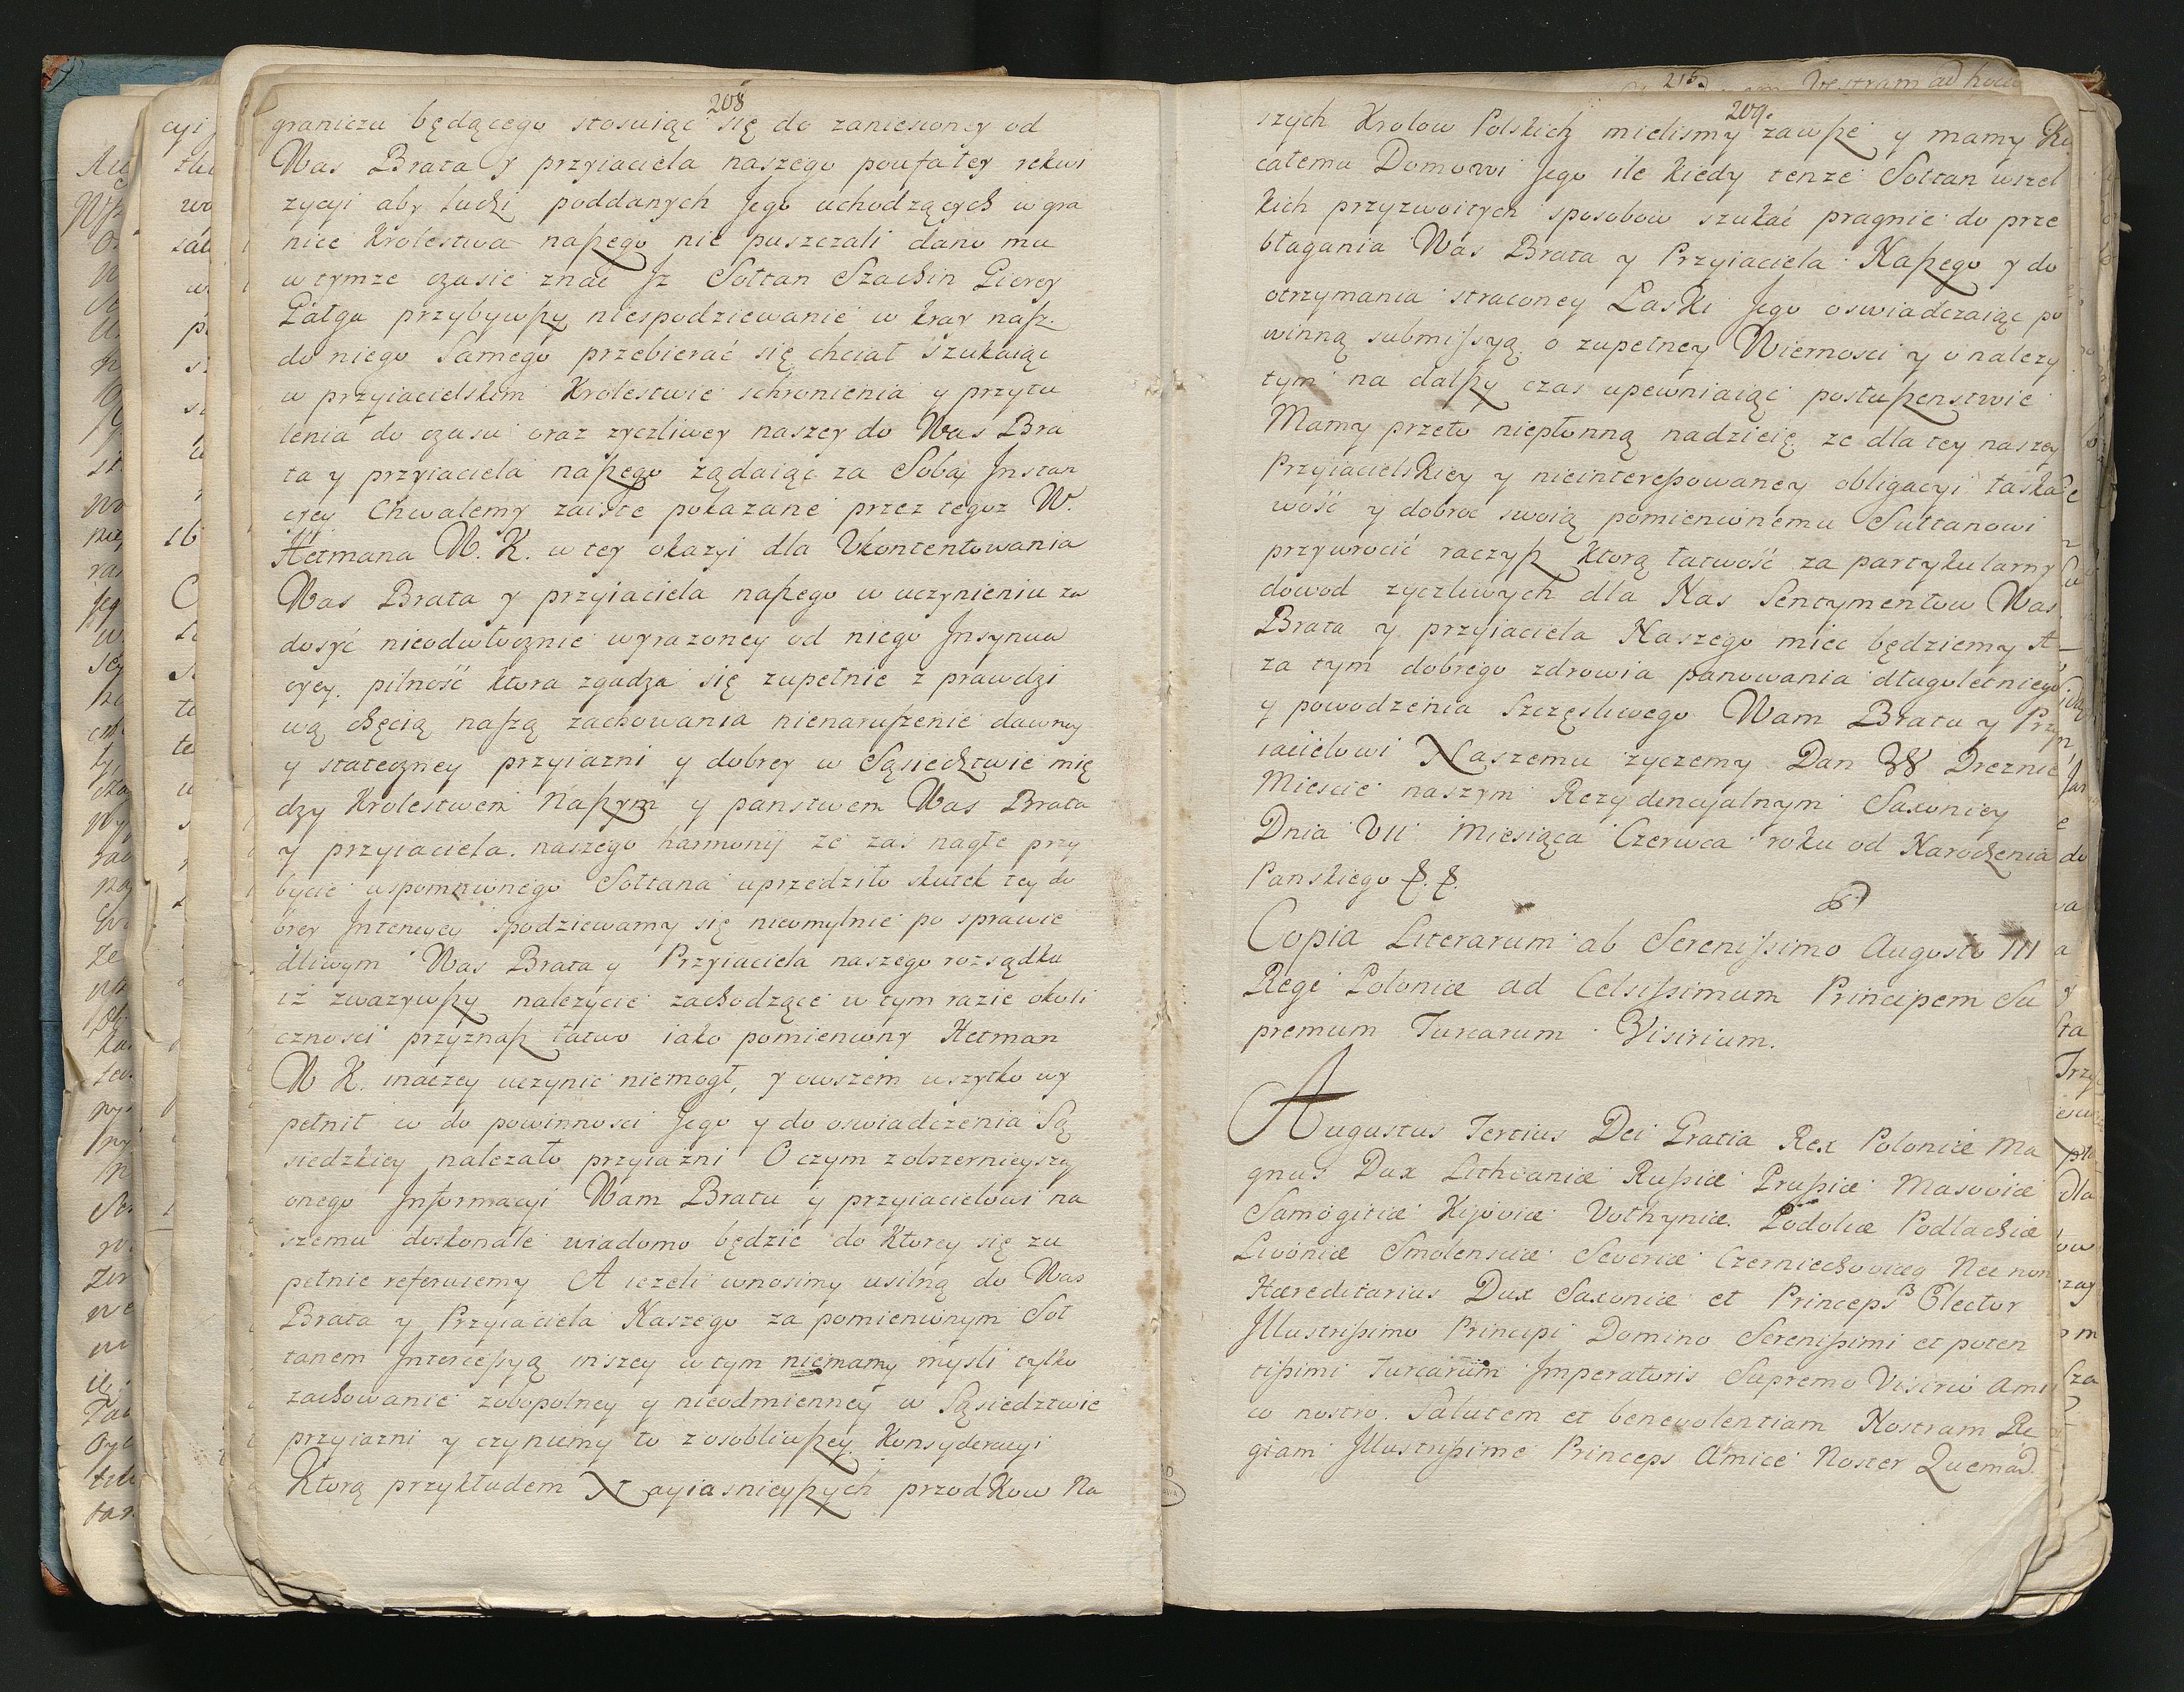 208
graniczu będącego stosuiąc się do zaniesioney od
Was Brata y przyiaciela naszego poufałey rekwi
zycyi aby ludzi poddanych Jego uchodzących w gra
nice Krolestwa naszego nie puszczali dano mu
w tymze czasie znac Jz Sołtan Szachin Gierey
Gałga przybywszy niespodziewanie w kray nasz
do niego Samego przebierać się chciał szukaiąc
w przyiacielskim Krolestwie schronienia y przytu
lenia do czasu oraz zyczliwey naszey do Was Bra
ta y przyiaciela naszego żądaiąc za Sobą Jnstan
cyey Chwalemy zaiste pokazane przez tegoz W.
Hetmana W. K. w tey okazyi dla Vkontentowania
Was Brata y przyiaciela naszego w uczynieniu za
dosyć nieodwłocznie wyrazoney od niego Jnsynua
cyey. pilność ktora zgadza się zupełnie z prawdzi
wą chęcią naszą zachowania nienaruszenie dawney
y stateczney przyiazni y dobrey w Sąsiedztwie mię
dzy Krolestwem Naszym y panstwem Was Brata
y przyiaciela. naszego harmonij ze zas nagłe przy
bycie wspomnionego Sołtana uprzedziło skutek tey do
brey Jntencyey spodziewamy się nieomylnie po sprawie
dliwym Was Brata y Przyiaciela naszego rozsądku
iż zwazywszy nalezycie zachodzące w tym razie okoli
cznosci przyznasz łatwo iako pomieniony Hetman
W K. inaczey uczynic niemogł, y owszem wszytko wy
pełnił co do powinnosci Jego y do oswiadczenia Są
siedzkiey nalezało przyiazni O czym z obszernieyszey
onego Jnformacyi Wam Bratu y przyiacielowi na
szemu doskonale wiadomo będzie do ktorey się zu
pełnie referuiemy A iezeli wnosimy usilną do Was
Brata y Przyiaciela Naszego za pomienionym Soł
tanem Jntercessyą inszey w tym niemamy mysli tylko
zachowanie zobopolney y nieodmienney w Sąsiedztwie
przyiazni y czyniemy to z osobliwszey Konsyderacyi
Ktorą przykładem Nayiasnieyszych przodkow Na
209.
szych Krolow Polskich mielismy zawsze y mamy Ku
całemu Domowi Jego ile kiedy tenze Sołtan wszel
kich przyzwoitych sposobow szukać pragnie do prze
błagania Was Brata y Przyiaciela Naszego y do
otrzymania straconey Łaski Jego oswiadczaiąc po
winną submissyą o zupełney Wiernosci y o nalezy
tym na dalszy czas upewniaiąc posłuszenstwie
Mamy przeto niepłonną nadzieię ze dla tey naszey
Przyiacielskiey y nieinteressowaney obligacyi łaska
wość y dobroc swoią pomienionemu Sułtanowi
przywrocić raczysz ktorą łatwość za partykularny
dowod zyczliwych dla Nas Sentymentow Was
Brata y przyiaciela Naszego miec będziemy A
za tym dobrego zdrowia panowania długoletniego
y powodzenia Szczęsliwego Wam Bratu y Przy
iacielowi Naszemu zyczemy Dan W Dreznie
Miescie naszym Rezydencyalnym Saxoniey
Dnia VII Miesiąca Czerwca roku od Narodzenia
Panskiego
Copia Literarum ab Serenissimo Augusto III
Rege Poloniæ ad Celsissimum Principem Su
premum Turcarum Visirium.
Augustus Tertius Dei Gratia Rex Poloniæ Ma
gnus Dux Lithvaniæ Russiæ Prussiæ Masoviæ
Samogitiæ Kijoviæ Volhyniæ Podoliæ Podlachiæ
Livoniæ Smolensciæ Severiæ Czerniechoviæq Nec non
Hæreditarius Dux Saxoniæ et Princeps Elector
Jllustrissimo Principi Domino Serenissimi et poten
tissimi Turcarum Jmperatoris Supremo Visirio Ami
co nostro. Salutem et benevolentiam Nostram Re
giam Jllustrissime Princeps Amice Noster Quemad